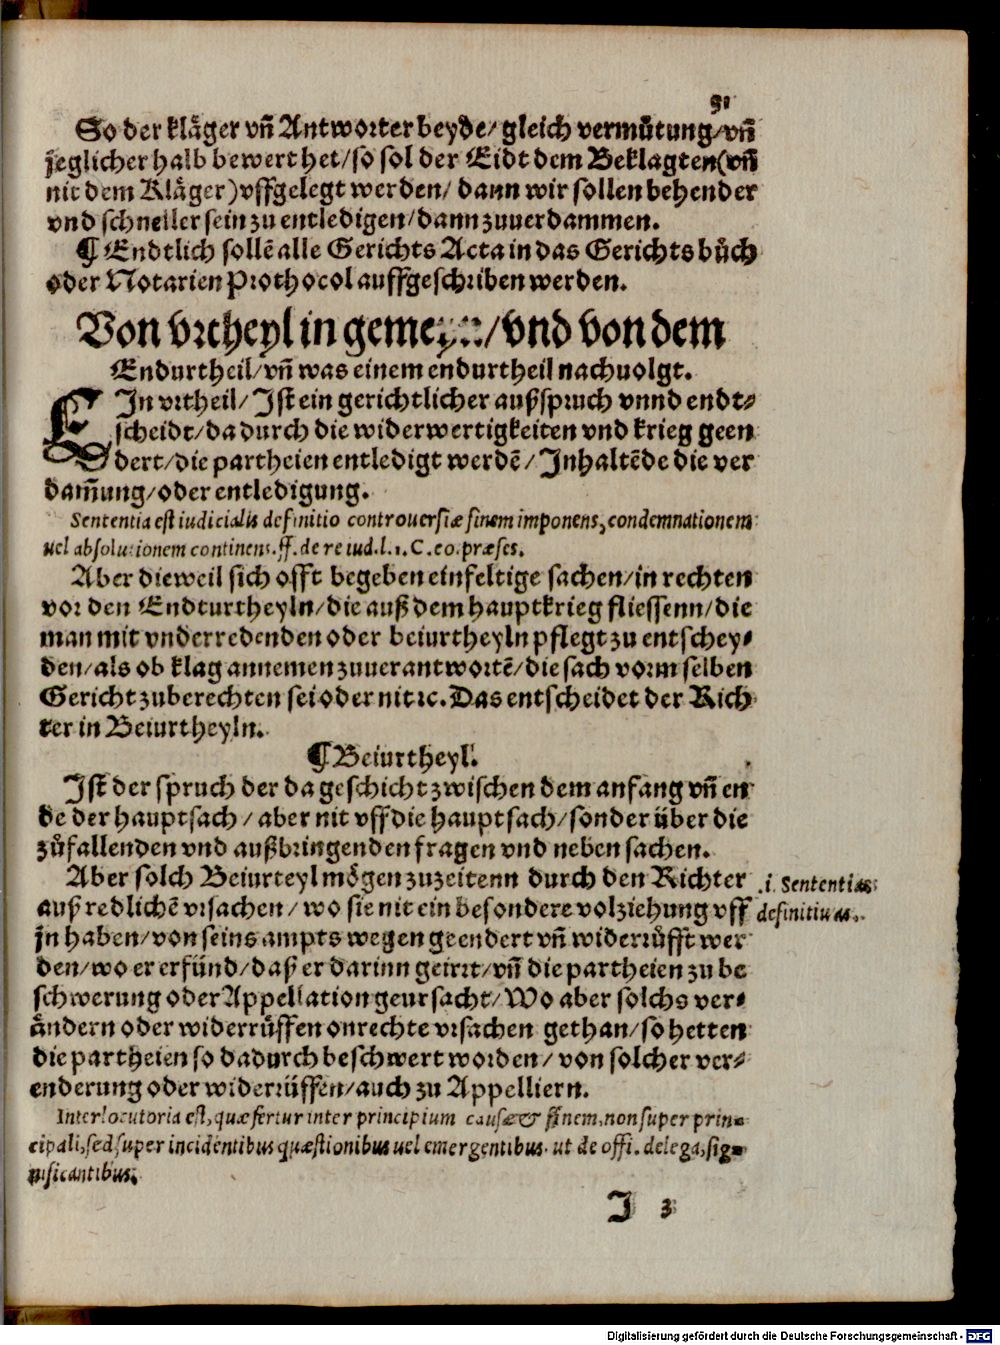 91
So der kläger vñ Antworter beyde/ gleich vermůtung/ vñ
jeglicher halb bewerthet/ so sol der Eidt dem Beklagten (vñ
nit dem Kläger) vffgelegt werden/ dann wir sollen behender
vnd schneller sein zu entledigen/ dann zuuerdammen.
¶ Endtlich sollē alle Gerichts Acta in das Gerichts bůch
oder Notarien Prothocol auffgeschriben werden.
Von vrtheyl in gemeyn/ vnd von dem
Endurtheil/ vñ was einem endurtheil nachuolgt.
EIn vrtheil/ Ist ein gerichtlicher außspruch vnnd endt⸗
scheidt/ dadurch die widerwertigkeiten vnd krieg geen
dert/ die partheien entledigt werdē/ Inhaltēde die ver
dam̄ung/ oder entledigung.
Sententia est iudicialis definitio controuersiæ finem imponens, condemnationem
uel absolutionem continens. ff. de re iud. l. 1. C. eo. præses.
Aber dieweil sich offt begeben einfeltige sachen/ in rechten
vor den Endturtheyln/ die auß dem hauptkrieg fliessenn/ die
man mit vnderredenden oder beiurtheyln pflegt zu entschey⸗
den/ als ob klag annemen zuuerantwortē/ die sach vorm selben
Gericht zuberechten sei oder nit ꝛc. Das entscheidet der Rich
ter in Beiurtheyln.
¶ Beiurtheyl.
Ist der spruch der da geschicht zwischen dem anfang vñ en
de der hauptsach/ aber nit vff die hauptsach/ sonder über die
zůfallenden vnd außbringenden fragen vnd neben sachen.
Aber solch Beiurteyl mögen zuzeitenn durch den Richter
auß redlichē vrsachen/ wo sie nit ein besondere volziehung vff
jn haben/ von seins ampts wegen geendert vñ widerrůfft wer
den/ wo er erfünd/ daß er darinn geirrt/ vñ die partheien zu be
schwerung oder Appellation geursacht/ Wo aber solchs ver⸗
ändern oder widerrůffen on rechte vrsachen gethan/ so hetten
die partheien so dadurch beschwert worden/ von solcher ver⸗
enderung oder widerrüffen/ auch zu Appelliern.
.i. Sententias
definitiuas.
Interlocutoria est, quæ fertur inter principium causæ & finem, non super prin⸗
cipali, sed super incidentibus quæstionibus uel emergentibus. ut de offi. delega, sig⸗
nificantibus.
J 3
Digitalisierung gefördert durch die Deutsche Forschungsgemeinschaft - DFG